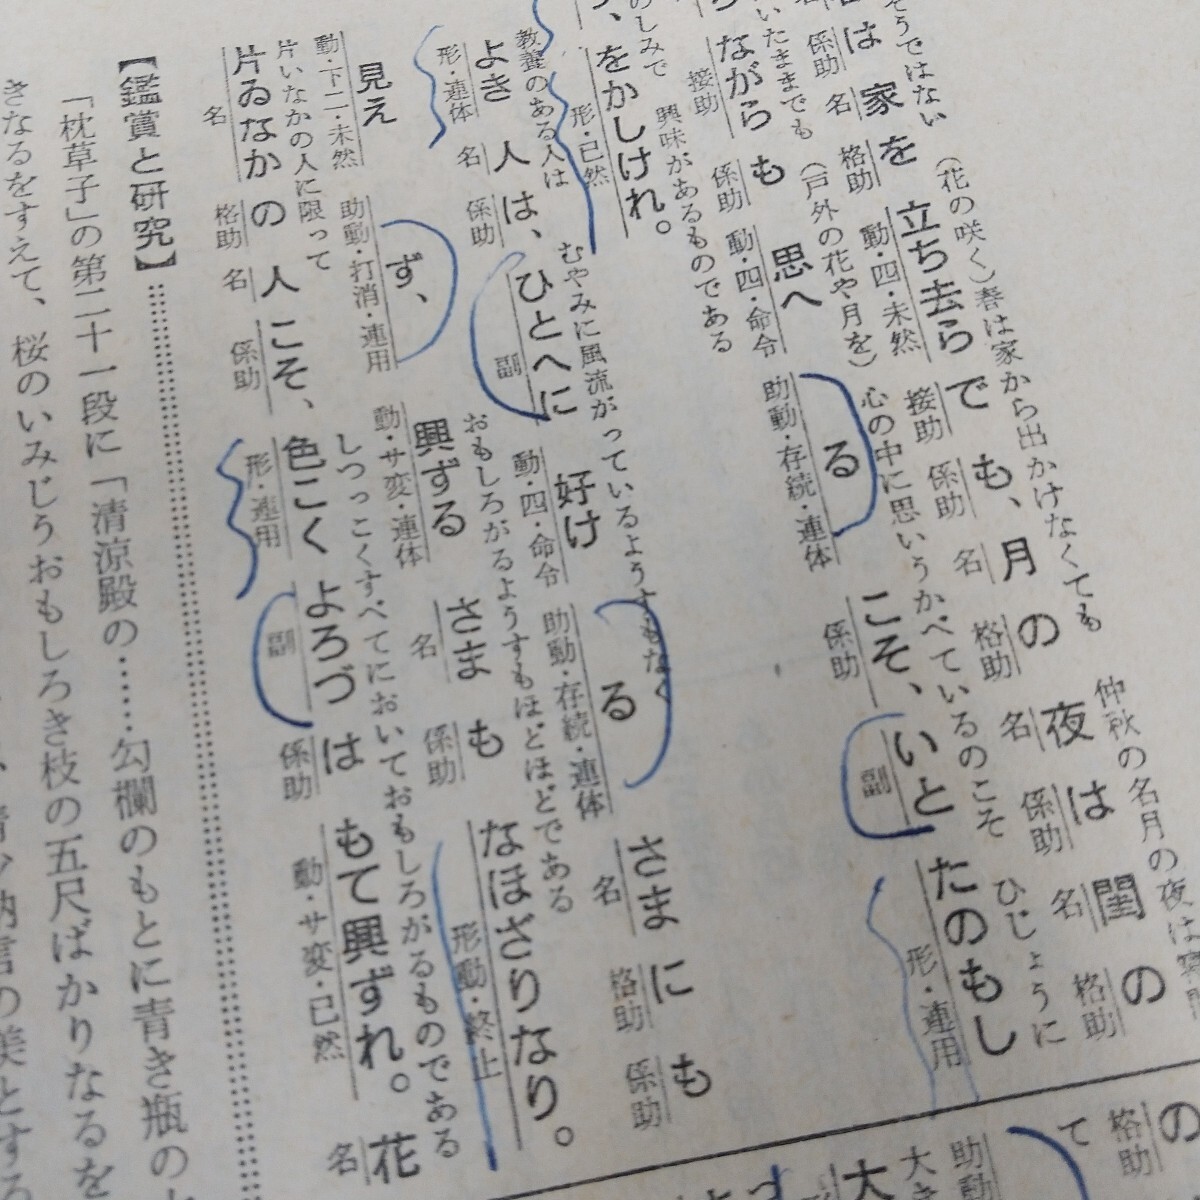 そうではない (花の咲く)春は家から出かけなくても 仲秋の名月の夜は寝間
は 家 を 立ち去ら で も、月 の 夜 は 閨 の
係助 名 格助 動・四・未然 接助 係助 名 格助 名 係助 名 格助
いたままでも (戸外の花や月を) 心の中に思いうかべているのこそ ひじょうに
ながら も 思へ る こそ、いと たのもし
接助 係助 動・四・命令 助動・存続・連体 係助 副 形・連用
のしみで 興味があるものである
、をかしけれ。
形・已然
教養のある人は むやみに風流がっているようすもなく
よき 人 は、ひとへに 好け る さま に も
形・連体 名 係助 副 動・四・命令 助動・存続・連体 名 格助 係助
おもしろがるようすもほどほどである
見え ず、興ずる さま も なほざりなり。
動・下二・未然 助動・打消・連用 動・サ変・連体 名 係助 形動・終止
片いなかの人に限って しつっこくすべてにおいておもしろがるものである
片ゐなか の 人 こそ、色こく よろづ は もて興ずれ。花
名 格助 名 係助 形・連用 副 係助 動・サ変・已然 名
【鑑賞と研究】
「枕草子」の第二十一段に「清涼殿の……勾欄のもとに青き瓶の
きなるをすえて、桜のいみじうおもしろき枝の五尺ばかりなるを
の
格助
て
助動
大き
大